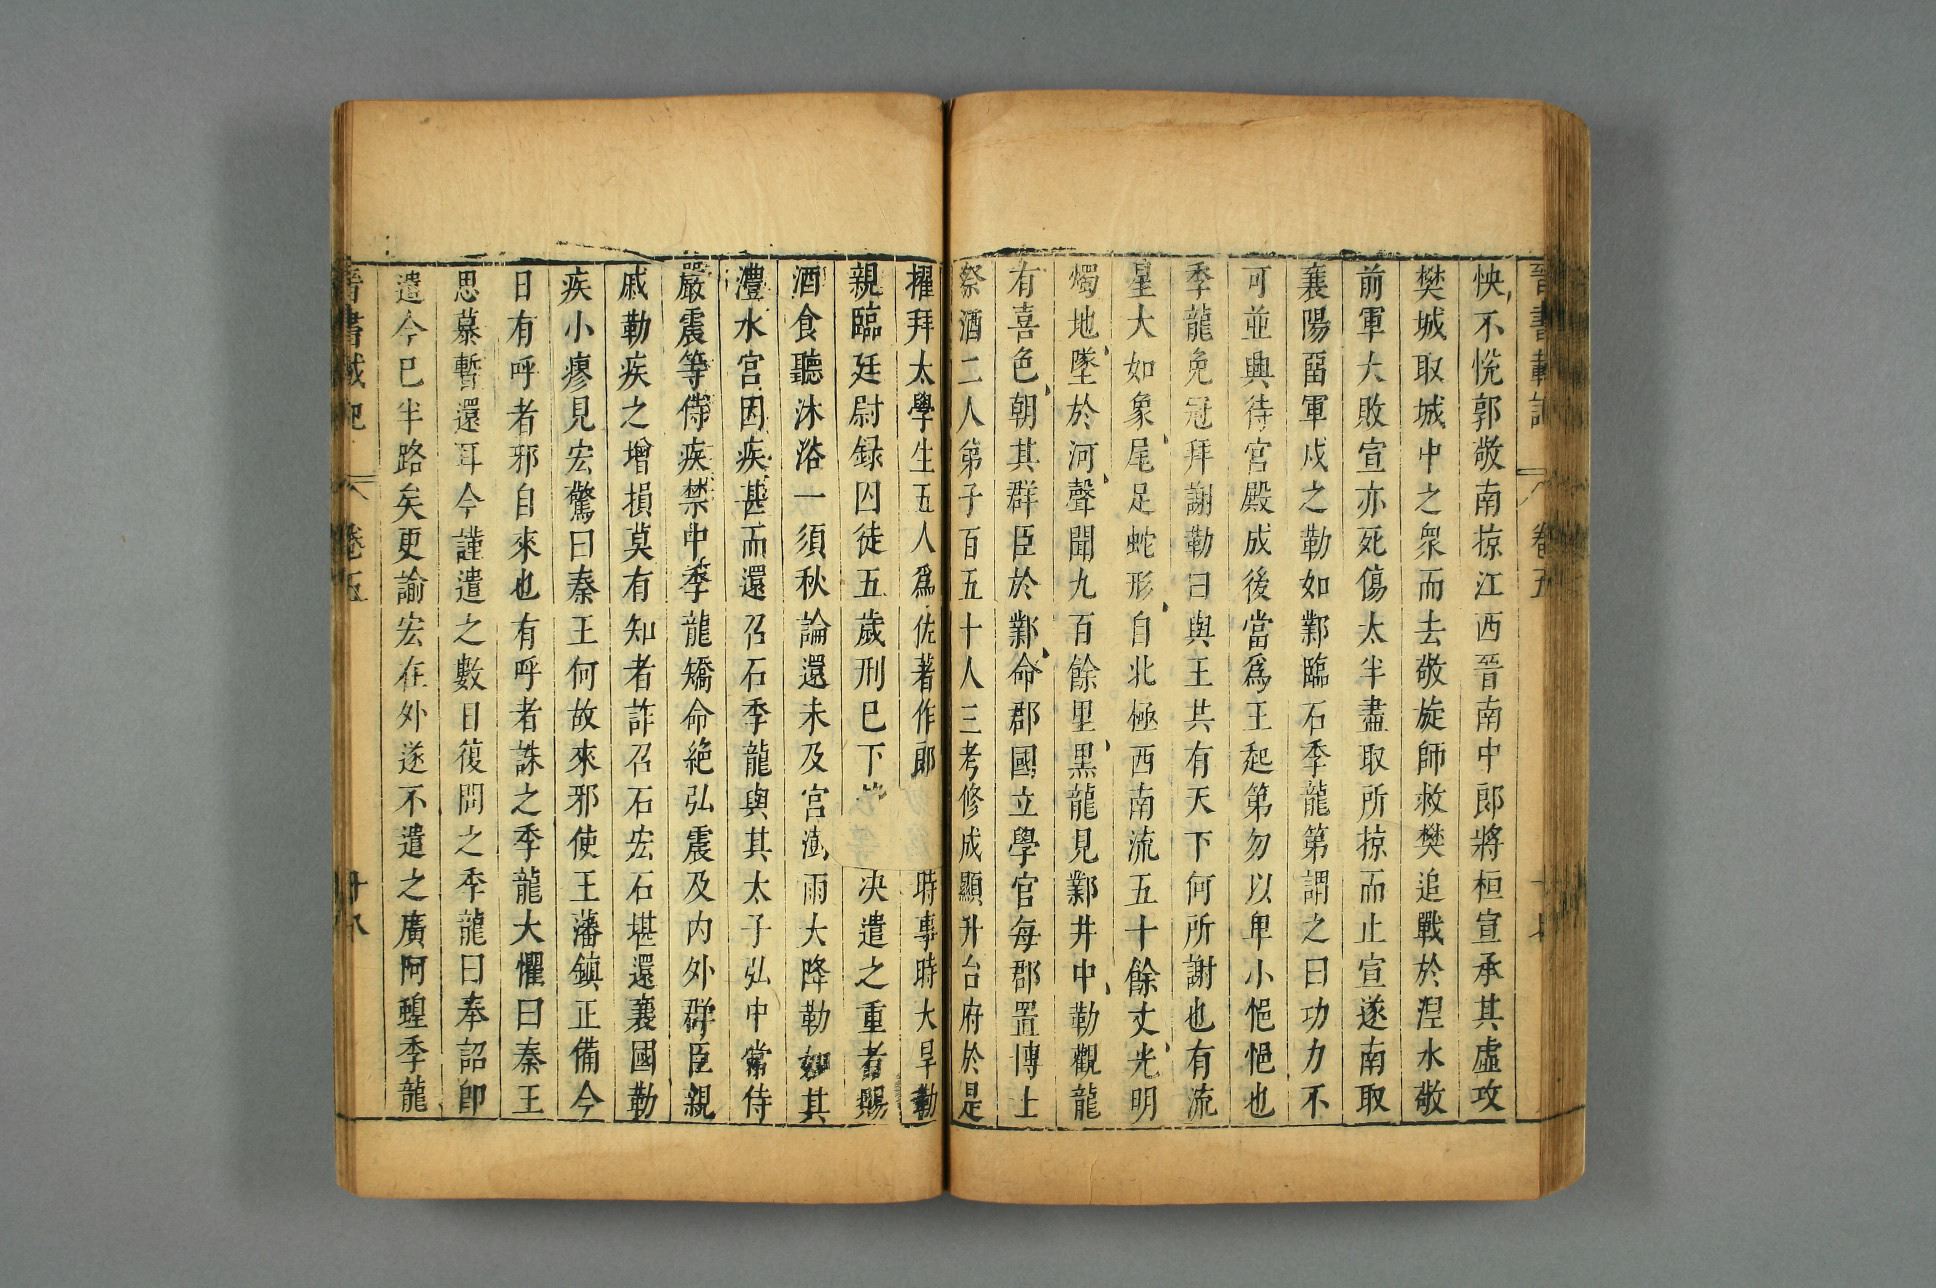 晉書載記 卷五
怏不悅郭敬南掠江西晉南中郎將桓宣承其虛攻
樊城取城中之衆而去敬旋師救樊追戰於涅水敬
前軍大敗宣亦死傷太半盡取所掠而止宣遂南取
襄陽畱軍戍之勒如鄴臨石季龍第謂之曰功力不
可並興待宮殿成後當爲王起第勿以卑小悒悒也
季龍免冠拜謝勒曰與王共有天下何所謝也有流
星大如象尾足蛇形自北極西南流五十餘丈光明
燭地墜於河聲聞九百餘里黑龍見鄴井中勒觀龍
有喜色朝其群臣於鄴命郡國立學官每郡置博士
祭酒二人弟子百五十人三考修成顯升台府於是
擢拜太學生五人爲佐著作郎 時事時大旱勒
親臨廷尉録囚徒五歲刑巳下 决遣之重者賜
酒食聽沐浴一須秋論還未及宮澍雨大降勒如其
澧水宮因疾甚而還召石季龍與其太子弘中常侍
嚴震等侍疾禁中季龍矯命絶弘震及内外群臣親
戚勒疾之增損莫有知者詐召石宏石堪還襄國勒
疾小瘳見宏驚曰秦王何故來邪使王藩鎮正備今
日有呼者邪自來也有呼者誅之季龍大懼曰秦王
思慕暫還耳今謹遣之數日復問之季龍曰奉詔卽
遣今巳半路矣更諭宏在外遂不遣之廣阿蝗季龍
晉書載記 卷五